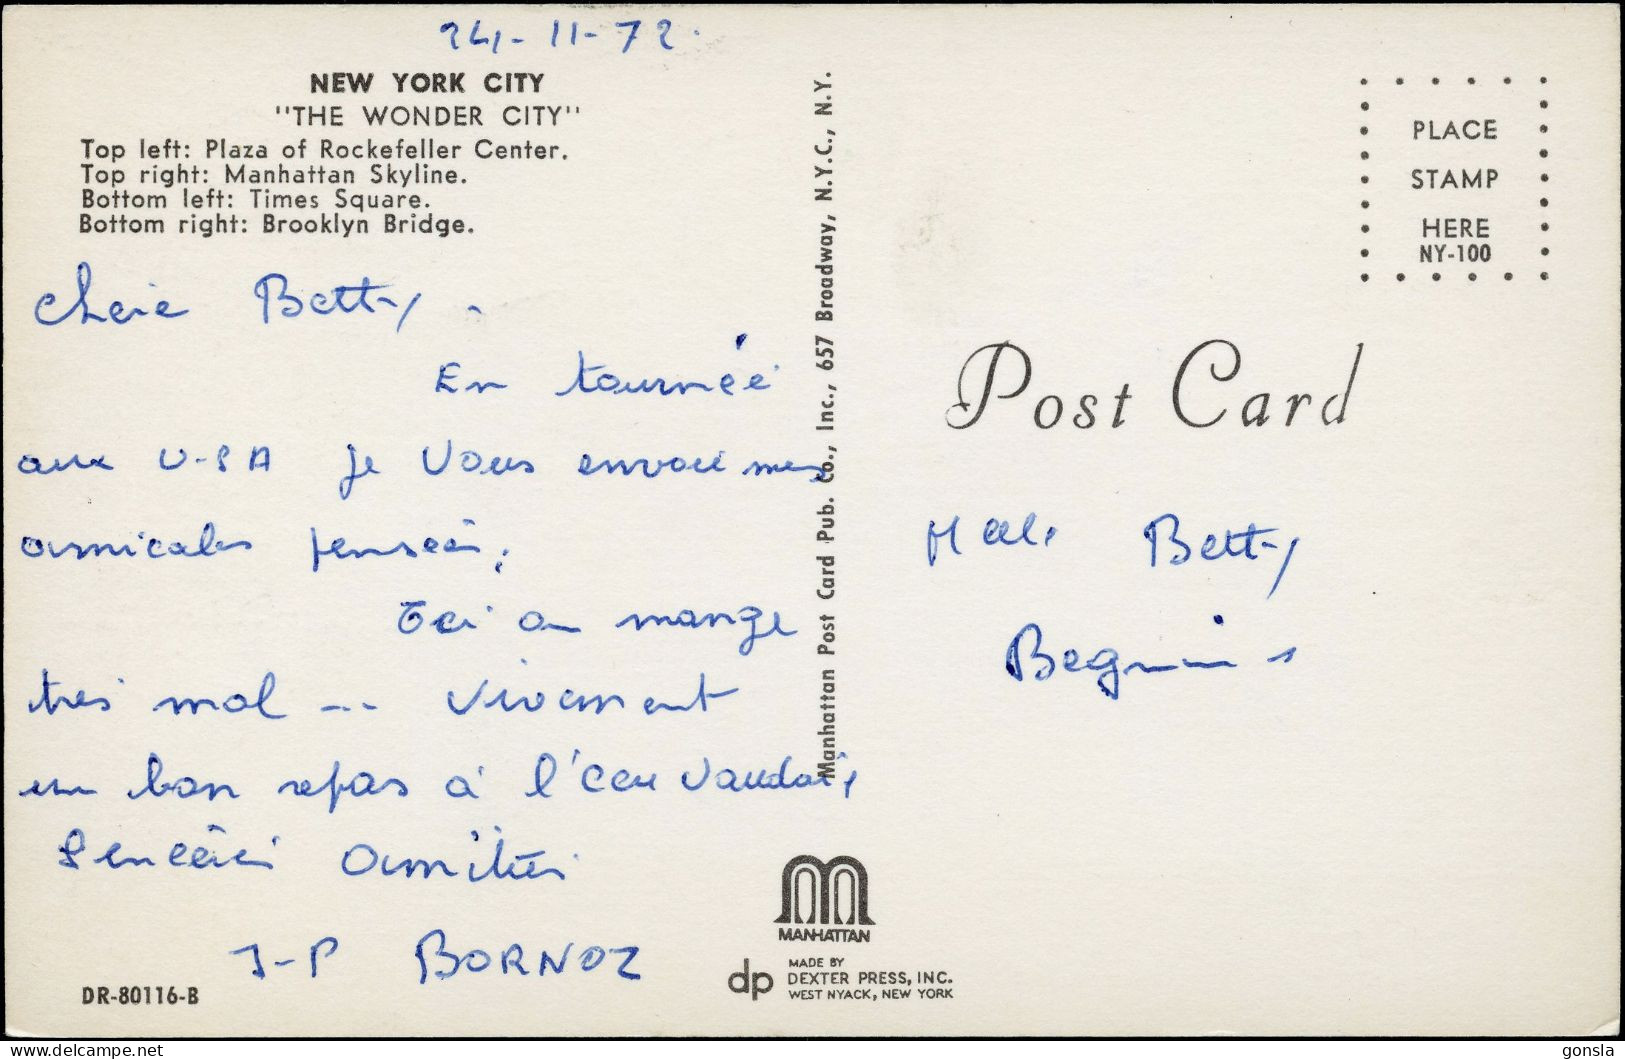 24-11-72.
NEW YORK CITY
"THE WONDER CITY"
Top left: Plaza of Rockefeller Center.
Top right: Manhattan Skyline.
Bottom left: Times Square.
Bottom right: Brooklyn Bridge.
Chère Betty.
En tournée
aux U-SA je vous envoie mes
amicales pensées.
Ici on mange
très mal -- vivement
un bon repas à l'écu Vaudois
Sincères amitiés
J-P BORNOZ
DR-80116-B
Manhattan Post Card Pub. Co., Inc., 657 Broadway, N.Y.C., N.Y.
MANHATTAN
dp MADE BY
DEXTER PRESS, INC.
WEST NYACK, NEW YORK
PLACE
STAMP
HERE
NY-100
Post Card
Betty
delcampe.net
gonsla